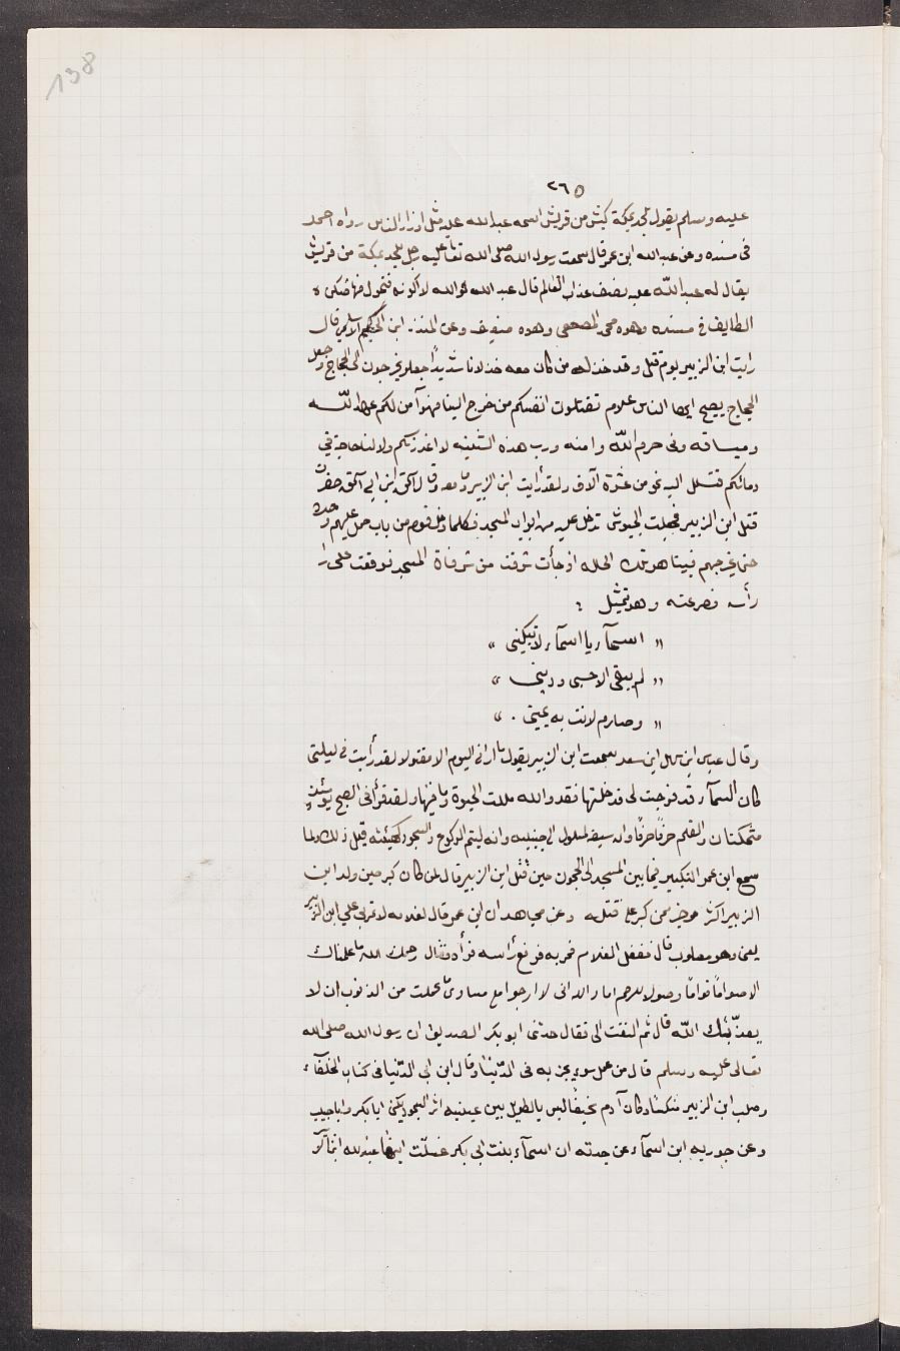 138
٢٦٥
عليه وسلم يقول يلحد بمكة كبش من قريش اسمه عبد الله عليه مثل اوزار الناس رواه احمد
في مسنده وعن عبد الله ابن عمر قال سمعت رسول الله صلى الله تعالى عليه رجل يلحد بمكة من قريش
يقال له عبد الله عليه نصف عذاب العالم قال عبد الله فوالله لا اكونه فتحول منها فسكن
الطايف في مسنده وهوه محمد المصحصي وهوه ضعيف وعن المنذر ابن الحكيم قال
رايت ابن الزبير يوم قتل وقد خذله من كان معه خذلانا شديداً جعلو يخرجون الى الحجاج وجعل
الحجاج يصيح ايها الناس علام تقتلون انفسكم من خرج الينا فهوآ من لكم عهد الله
وميساقه وفى حرم الله وامنه ورب هذه البنيه لا اغدر بكم ولا لنا حاجة في
دمائكم فتسلل اليه نحو من عشرة آلاف ولقد رأيت ابن الزبير وما معه
قتل ابن الزبير فجعلت الجيوش تدخل عليه من ابواب المسجد فكلما دخل قوم من باب حمل عليهم وحده
حتى يخرجهم فبينا هو على تلك الحاله اذ جأت شرفت من شرفاة المسجد فوقعت على را
رأسه فصرعته وهو يتمثل :
" اسمآء يا اسمآء لا تبكيني "
" لم يبقى الا حسبى وديني "
" وصارم لانت به يميني . "
وقال عباس ابن سهل ابن سعد سمعت ابن الزبير يقول ما ارانى اليوم الا مقتولا لقد رأيت في ليلتي
كان السمآء قد فرجت لى فدخلتها فقد والله مللت الحيوة وما فيها ولقد قرأ فى الصبح يومئذ
متمكنا ن والقلم حرفاً حرفاً وان سيفه لمسلول الى جنبيه وانه ليتم الركوع والسجود كهيئته قبل ذلك ولما
سمع ابن عمر التكبير فيما بين المسجد الى الحجون حين قتل ابن الزبير قال لمن كان كبر حين ولد ابن
الزبير اكثر وخير ممن كبر على قتله وعن مجاهد ان ابن عمر قال لغلامه لا تمر بي على ابن الزبير
يعنى وهو مصلوب قال فغفل الغلام فمر به فرفع رأسه فرآه فقال رحمك الله ما علمناك
الا صواماً قواماً وصولا للرحم اما والله انى لا ارجوا مع مساوى ما عملت من الذنوب ان لا
يعذّبك الله قال ثم التفت الى فقال حدثنى ابو بكر الصديق ان رسول الله صلى الله
تعالى عليه وسلم قال من يعمل سوء يجز به فى الدنيا وقال ابن ابى الدّنيا في كتاب الخلفآء
وصلب ابن الزبير منكسا وكان آدم نحيفا ليس بالطويل بين عينيه اثر السجود يكنى ابا بكر وابا خبيب
وعن جويريه ابن اسمآء عن جدته ان اسمآء بنت ابي بكر غسلت ابنها عبد الله